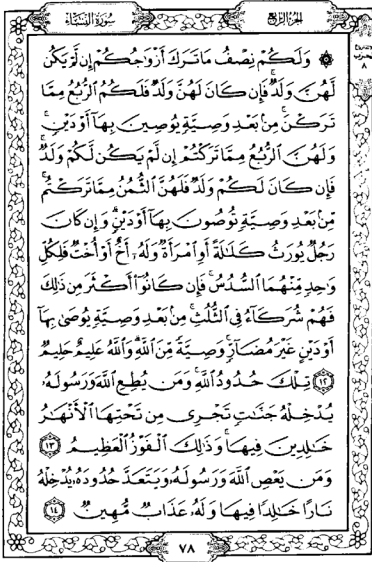 سُورَةُ النِّسَاءِ الجُزءُ الرَّابِعُ
۞ وَلَكُمْ نِصْفُ مَا تَرَكَ أَزْوَاجُكُمْ إِن لَّمْ يَكُن
لَّهُنَّ وَلَدٌ فَإِن كَانَ لَهُنَّ وَلَدٌ فَلَكُمُ الرُّبُعُ مِمَّا
تَرَكْنَ مِنۢ بَعْدِ وَصِيَّةٍ يُوصِينَ بِهَآ أَوْ دَيْنٍ
وَلَهُنَّ الرُّبُعُ مِمَّا تَرَكْتُمْ إِن لَّمْ يَكُن لَّكُمْ وَلَدٌ
فَإِن كَانَ لَكُمْ وَلَدٌ فَلَهُنَّ الثُّمُنُ مِمَّا تَرَكْتُم
مِّنۢ بَعْدِ وَصِيَّةٍ تُوصُونَ بِهَآ أَوْ دَيْنٍ وَإِن كَانَ
رَجُلٌ يُورَثُ كَلَٰلَةً أَوِ امْرَأَةٌ وَلَهُۥٓ أَخٌ أَوْ أُخْتٌ فَلِكُلِّ
وَٰحِدٍ مِّنْهُمَا السُّدُسُ فَإِن كَانُوٓا۟ أَكْثَرَ مِن ذَٰلِكَ
فَهُمْ شُرَكَآءُ فِى الثُّلُثِ مِنۢ بَعْدِ وَصِيَّةٍ يُوصَىٰ بِهَآ
أَوْ دَيْنٍ غَيْرَ مُضَآرٍّ وَصِيَّةً مِّنَ اللَّهِ وَاللَّهُ عَلِيمٌ حَلِيمٌ
١٢ تِلْكَ حُدُودُ اللَّهِ وَمَن يُطِعِ اللَّهَ وَرَسُولَهُۥ
يُدْخِلْهُ جَنَّٰتٍ تَجْرِى مِن تَحْتِهَا الْأَنْهَٰرُ
خَٰلِدِينَ فِيهَا وَذَٰلِكَ الْفَوْزُ الْعَظِيمُ ١٣
وَمَن يَعْصِ اللَّهَ وَرَسُولَهُۥ وَيَتَعَدَّ حُدُودَهُۥ يُدْخِلْهُ
نَارًا خَٰلِدًا فِيهَا وَلَهُۥ عَذَابٌ مُّهِينٌ ١٤
٧٨